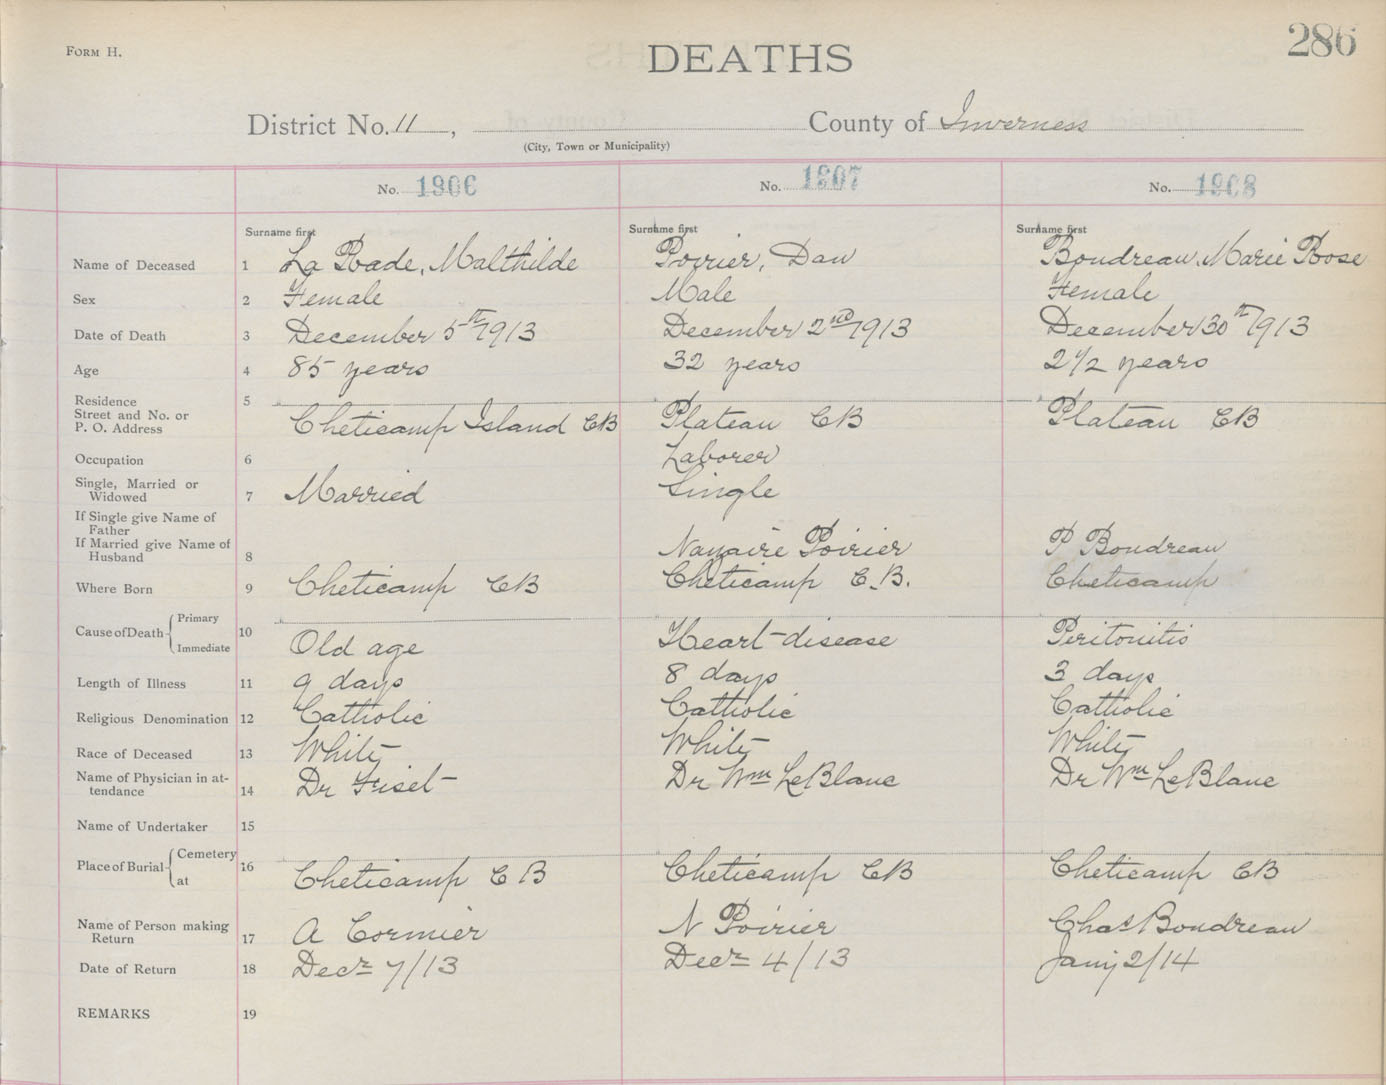 286
FORM H.
DEATHS
District No. 11, County of Inverness
(City, Town or Municipality)
No. 1906 No. 1907 No. 1908
Surname first Surname first Surname first
Name of Deceased 1 La Rade, Malthilde Poirier, Dan Boudreau, Marie Rose
Sex 2 Female Male Female
Date of Death 3 December 5th 1913 December 2nd 1913 December 30th 1913
Age 4 85 years 32 years 2 1/2 years
Residence 5
Street and No. or
P. O. Address Cheticamp Island CB Plateau CB Plateau CB
Occupation 6 Laborer
Single, Married or
Widowed 7 Married Single
If Single give Name of
Father
If Married give Name of
Husband 8 Poirier P Boudreau
Where Born 9 Cheticamp CB Cheticamp C.B. Cheticamp
Cause of Death Primary 10
Immediate Old age Heart disease Peritonitis
Length of Illness 11 9 days 8 days 3 days
Religious Denomination 12 Catholic Catholic Catholic
Race of Deceased 13 White White White
Name of Physician in at-
tendance 14 Dr Fiset Dr Wm LeBlanc Dr Wm LeBlanc
Name of Undertaker 15
Place of Burial Cemetery 16
at Cheticamp CB Cheticamp CB Cheticamp CB
Name of Person making
Return 17 A Cormier N Poirier Chas Boudreau
Date of Return 18 Decr 7/13 Decr 4/13 Jany 2/14
REMARKS 19